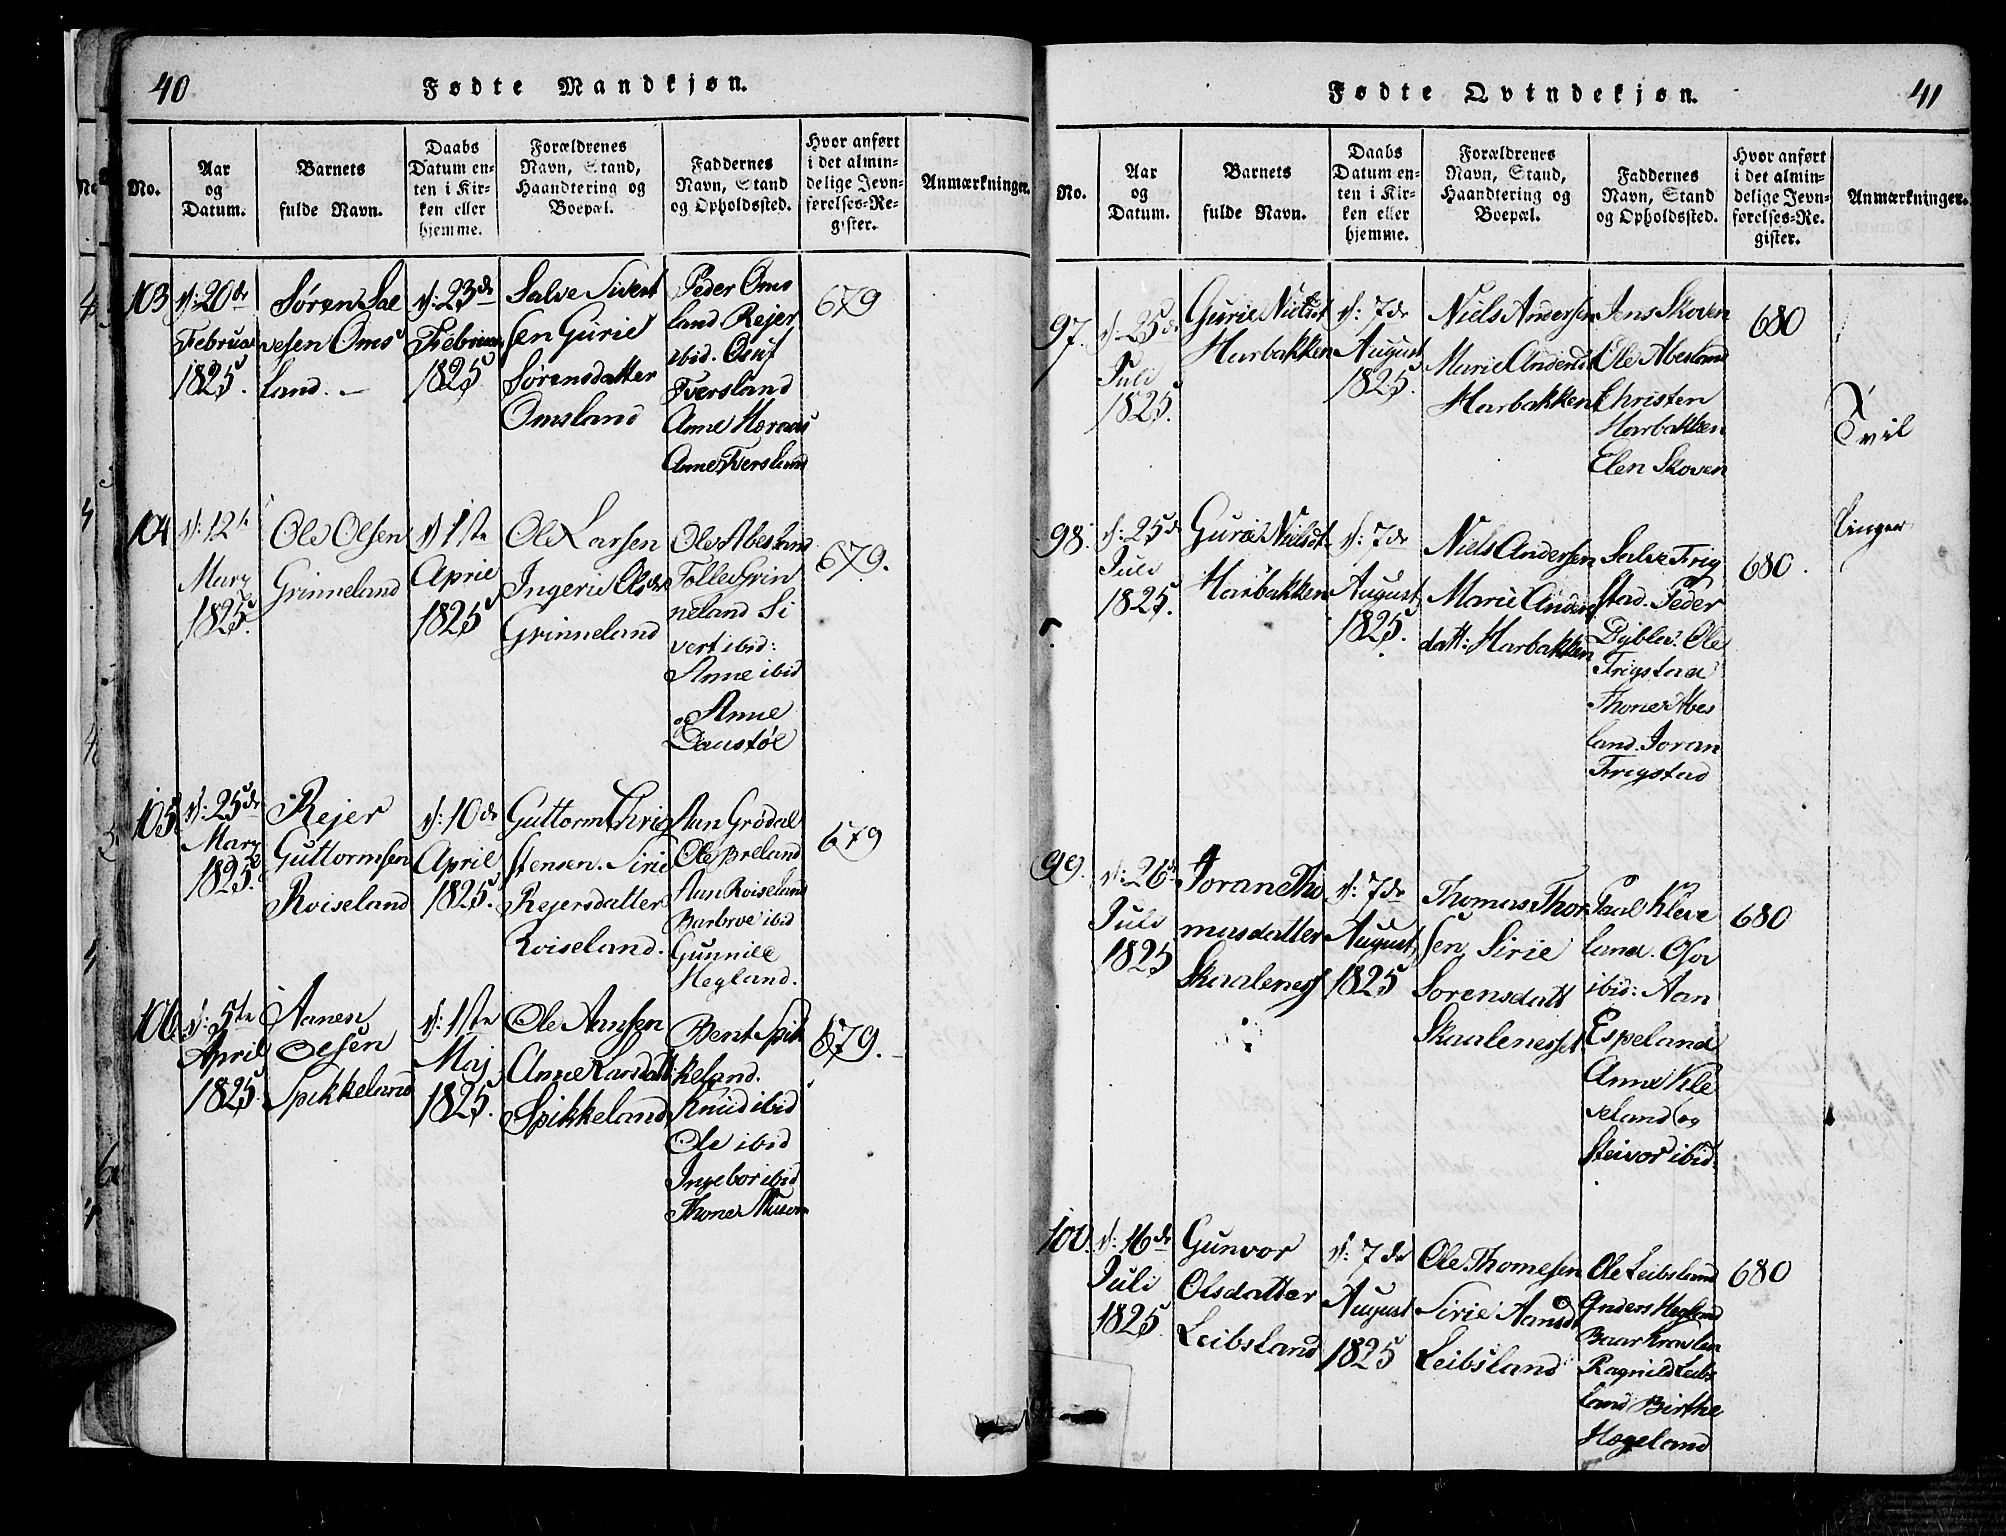 40
Fødte Mandkjøn.
No.
Aar
og
Datum.
Barnets
fulde Navn.
Daabs
Datum en-
ten i Kir-
ken eller
hjemme.
Forældrenes
Navn, Stand,
Haandtering og
Boepæl.
Faddernes
Navn, Stand
og Opholdssted.
Hvor anført
i det almin-
delige Jevn-
førelses-Re-
gister.
Anmærkninger.
103
d: 20de
Februar
1825.
Søren Sal
vesen Oms
land. —
d: 23de
Februar
1825
Salve Sivert
sen Gurie
Sørensdatter
Omsland
Peder Oms
land Rejer
ibid. Osuf
Tversland
Anne
Anne Tversland
679
104
d: 12te
Marz
1825.
Ole Olsen
Grinneland
d 1ste
April
1825
Ole Larsen
Ingerie Olsdr
Grinneland
Ole Abesland
Tolle Grin
neland Si
vert ibid:
Anne ibid
og Anne
Daustøl
679.
105
d: 25de
Marz
1825.
Rejer
Guttormsen
Roiseland
d: 10de
April
1825.
Guttorm Chris
stensen. Sirie
Rejersdatter
Roiseland.
Aan Grødal
Ole Breland
Aan Roiseland
Barbroe ibid
Gunnild
Hegland.
679
106
d: 5te
April
1825.
Aanen
Olsen
Spikkeland
d: 1ste
Maj
1825.
Ole Aansen
Anne Larsdatt
Spikkeland
Bent Spik
keland.
Knud ibid
Ole ibid
Ingebor ibid
Thone
679.
41
Fødte Qvindekjøn.
No.
Aar
og
Datum.
Barnets
fulde Navn.
Daabs
Datum en-
ten i Kir-
ken eller
hjemme.
Forældrenes
Navn, Stand,
Haandtering og
Boepæl.
Faddernes
Navn, Stand
og Opholdssted.
Hvor anført
i det almin-
delige Jevn-
førelses-Re-
gister.
Anmærkninger.
97.
d: 25de
Juli
1825.
Gurie Nielsdt
Harbakken
d: 7de
August
1825.
Niels Andersen
Marie Andersdt
Harbakken
Jens Skoven
Ole Abesland
Christen
Harbakken
Elen Skoven
680
Tvil
linger
98.
d: 25de
Juli
1825.
Gurie Nielsdt.
Harbakken
d: 7de
August
1825.
Niels Andersen
Marie Anders
datt: Harbakken
Salve Trig
stad. Peder
Dybler. Ole
Trigstad
Thone Abes
land. Joran
Trigstad
680.
99.
d: 26de
Juli
1825
Jorane Tho
masdatter
Skaalenesf
d: 7de
August
1825
Thomas Thor
sen Sirie
Sorensdatt
Skaalenesset
Paal Kleve
land. Osov
ibid: Aan
Espeland
Anne Kle
veland og
Steivor ibid:
680
100.
d: 16de
Juli
1825
Gunvor
Olsdatter
Leibsland
d: 7de
August
1825
Ole Thomesen
Sirie Aansdt
Leibsland
Ole Leibsland
Anders Hegland
Baar
Ragnild Leibs
land Birthe
Hægeland
680